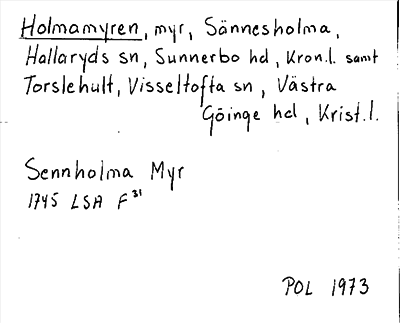 Holmamyren, myr, Sännesholma,
Hallaryds sn, Sunnerbo hd, Kron.l. samt
Torslehult, Visseltofta sn, Västra
Göinge hd, Krist.l.
Sennholma Myr
1745 LSA F 31
POL 1973